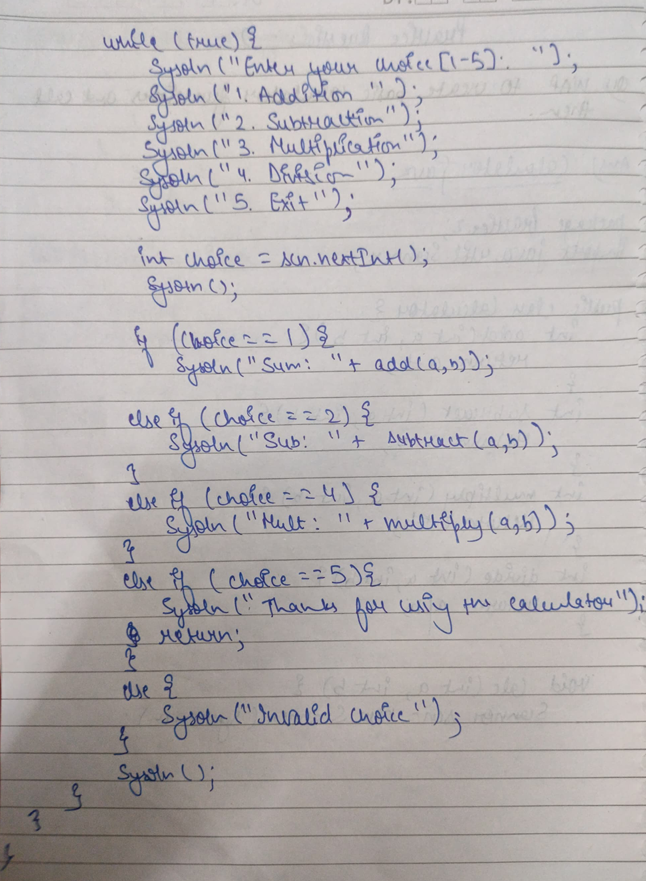 while (true) {
Sysoln ("Enter your choice [1-5]: ");
Sysoln ("1. Addition ");
Sysoln ("2. Subtraction");
Sysoln ("3. Multiplication");
Sysoln ("4. Division");
Sysoln ("5. Exit");
int choice = scn.nextInt();
Sysoln ();
if (choice == 1) {
Sysoln ("Sum: " + add(a,b));
else if (choice == 2) {
Sysoln ("Sub: " + subtract (a,b));
}
else if (choice == 4) {
Sysoln ("Mult: " + multiply (a,b));
}
else if (choice == 5) {
Sysoln (" Thanks for using the calculator");
return;
}
else {
Sysoln ("Invalid choice");
}
Sysoln ();
}
}
}